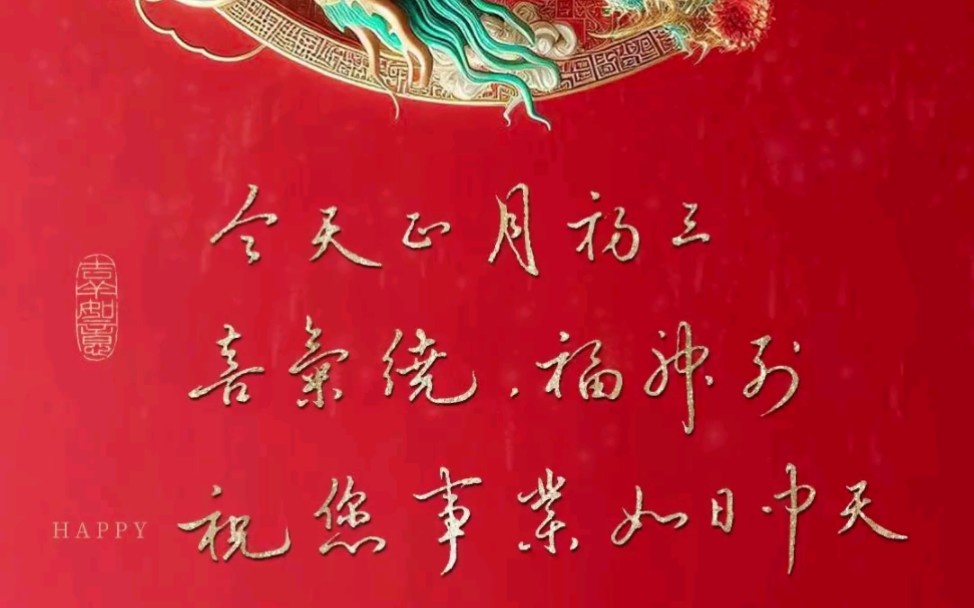 今天正月初三
喜氣绕，福神到
祝您事業如日中天
HAPPY
吉祥如意